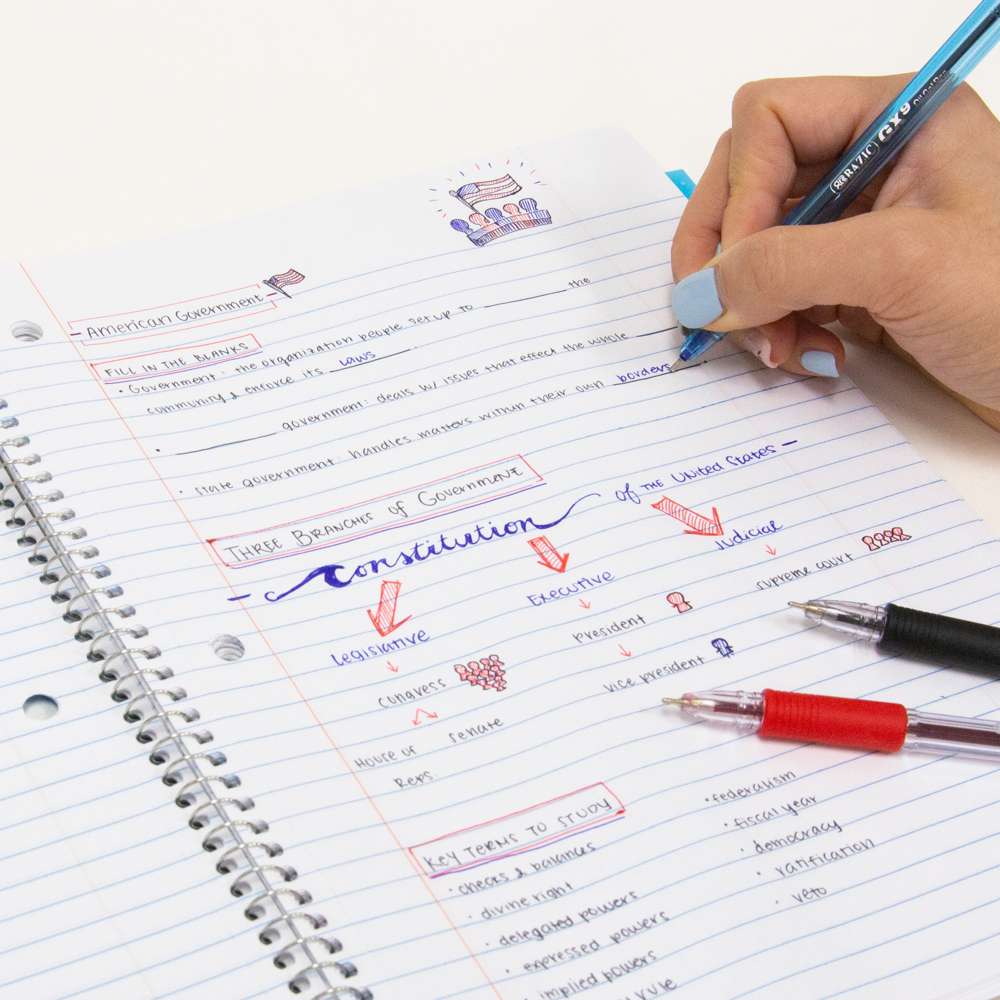 American Government
FILL IN THE BLANKS
• Government : the organization people set up to ________ the
community & enforce its laws.
• ________ government: deals w/ issues that effect the whole ________
• State government: handles matters within their own borders
THREE BRANCHES OF GOVERNMENT
Constitution of THE UNITED STATES
Legislative Executive Judicial
congress President supreme court
House of Reps. senate vice president
KEY TERMS TO STUDY
• checks & balances
• divine right
• delegated powers
• expressed powers
• implied powers
rule
• federalism
• fiscal year
• democracy
• ratification
• veto
BAZIC GX9